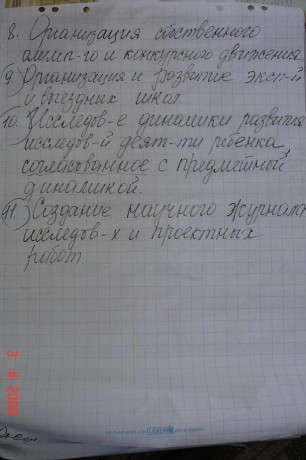 8. Организация собственного
олимп-го и конкурсного движения
9) Организация и развитие эксп-й
и выездных школ.
10. Исследов-е динамики развития
исследов-й деят-ти ребенка,
согласованное с предметной
динамикой.
11.) Создание научного журнала
исследов-х и проектных
работ